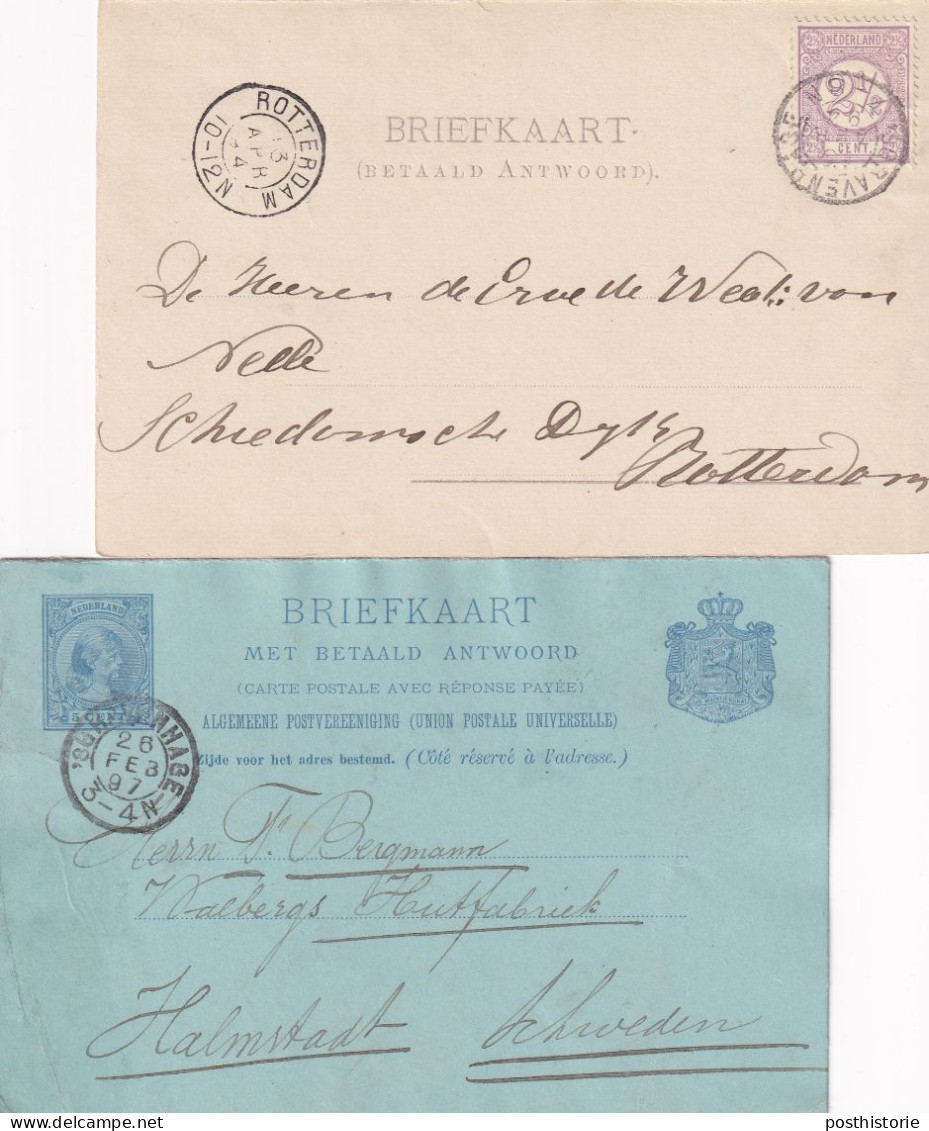 NEDERLAND
2½ 2½
CENT.
ROTTERDAM
13
APR
94
10-12N
BRIEFKAART
(BETAALD ANTWOORD).
De Heeren de Erve de Wed: von
Nelle
Schiedamsche Dyk
Rotterdam
NEDERLAND
5 CENT
BRIEFKAART
MET BETAALD ANTWOORD
(CARTE POSTALE AVEC RÉPONSE PAYÉE)
ALGEMEENE POSTVEREENIGING (UNION POSTALE UNIVERSELLE)
Zijde voor het adres bestemd. (Côté réservé à l'adresse.)
26
FEB
97
3-4N
Herrn F. Bergmann
Walbergs Hutfabriek
Halmstadt Schweden
posthistorie